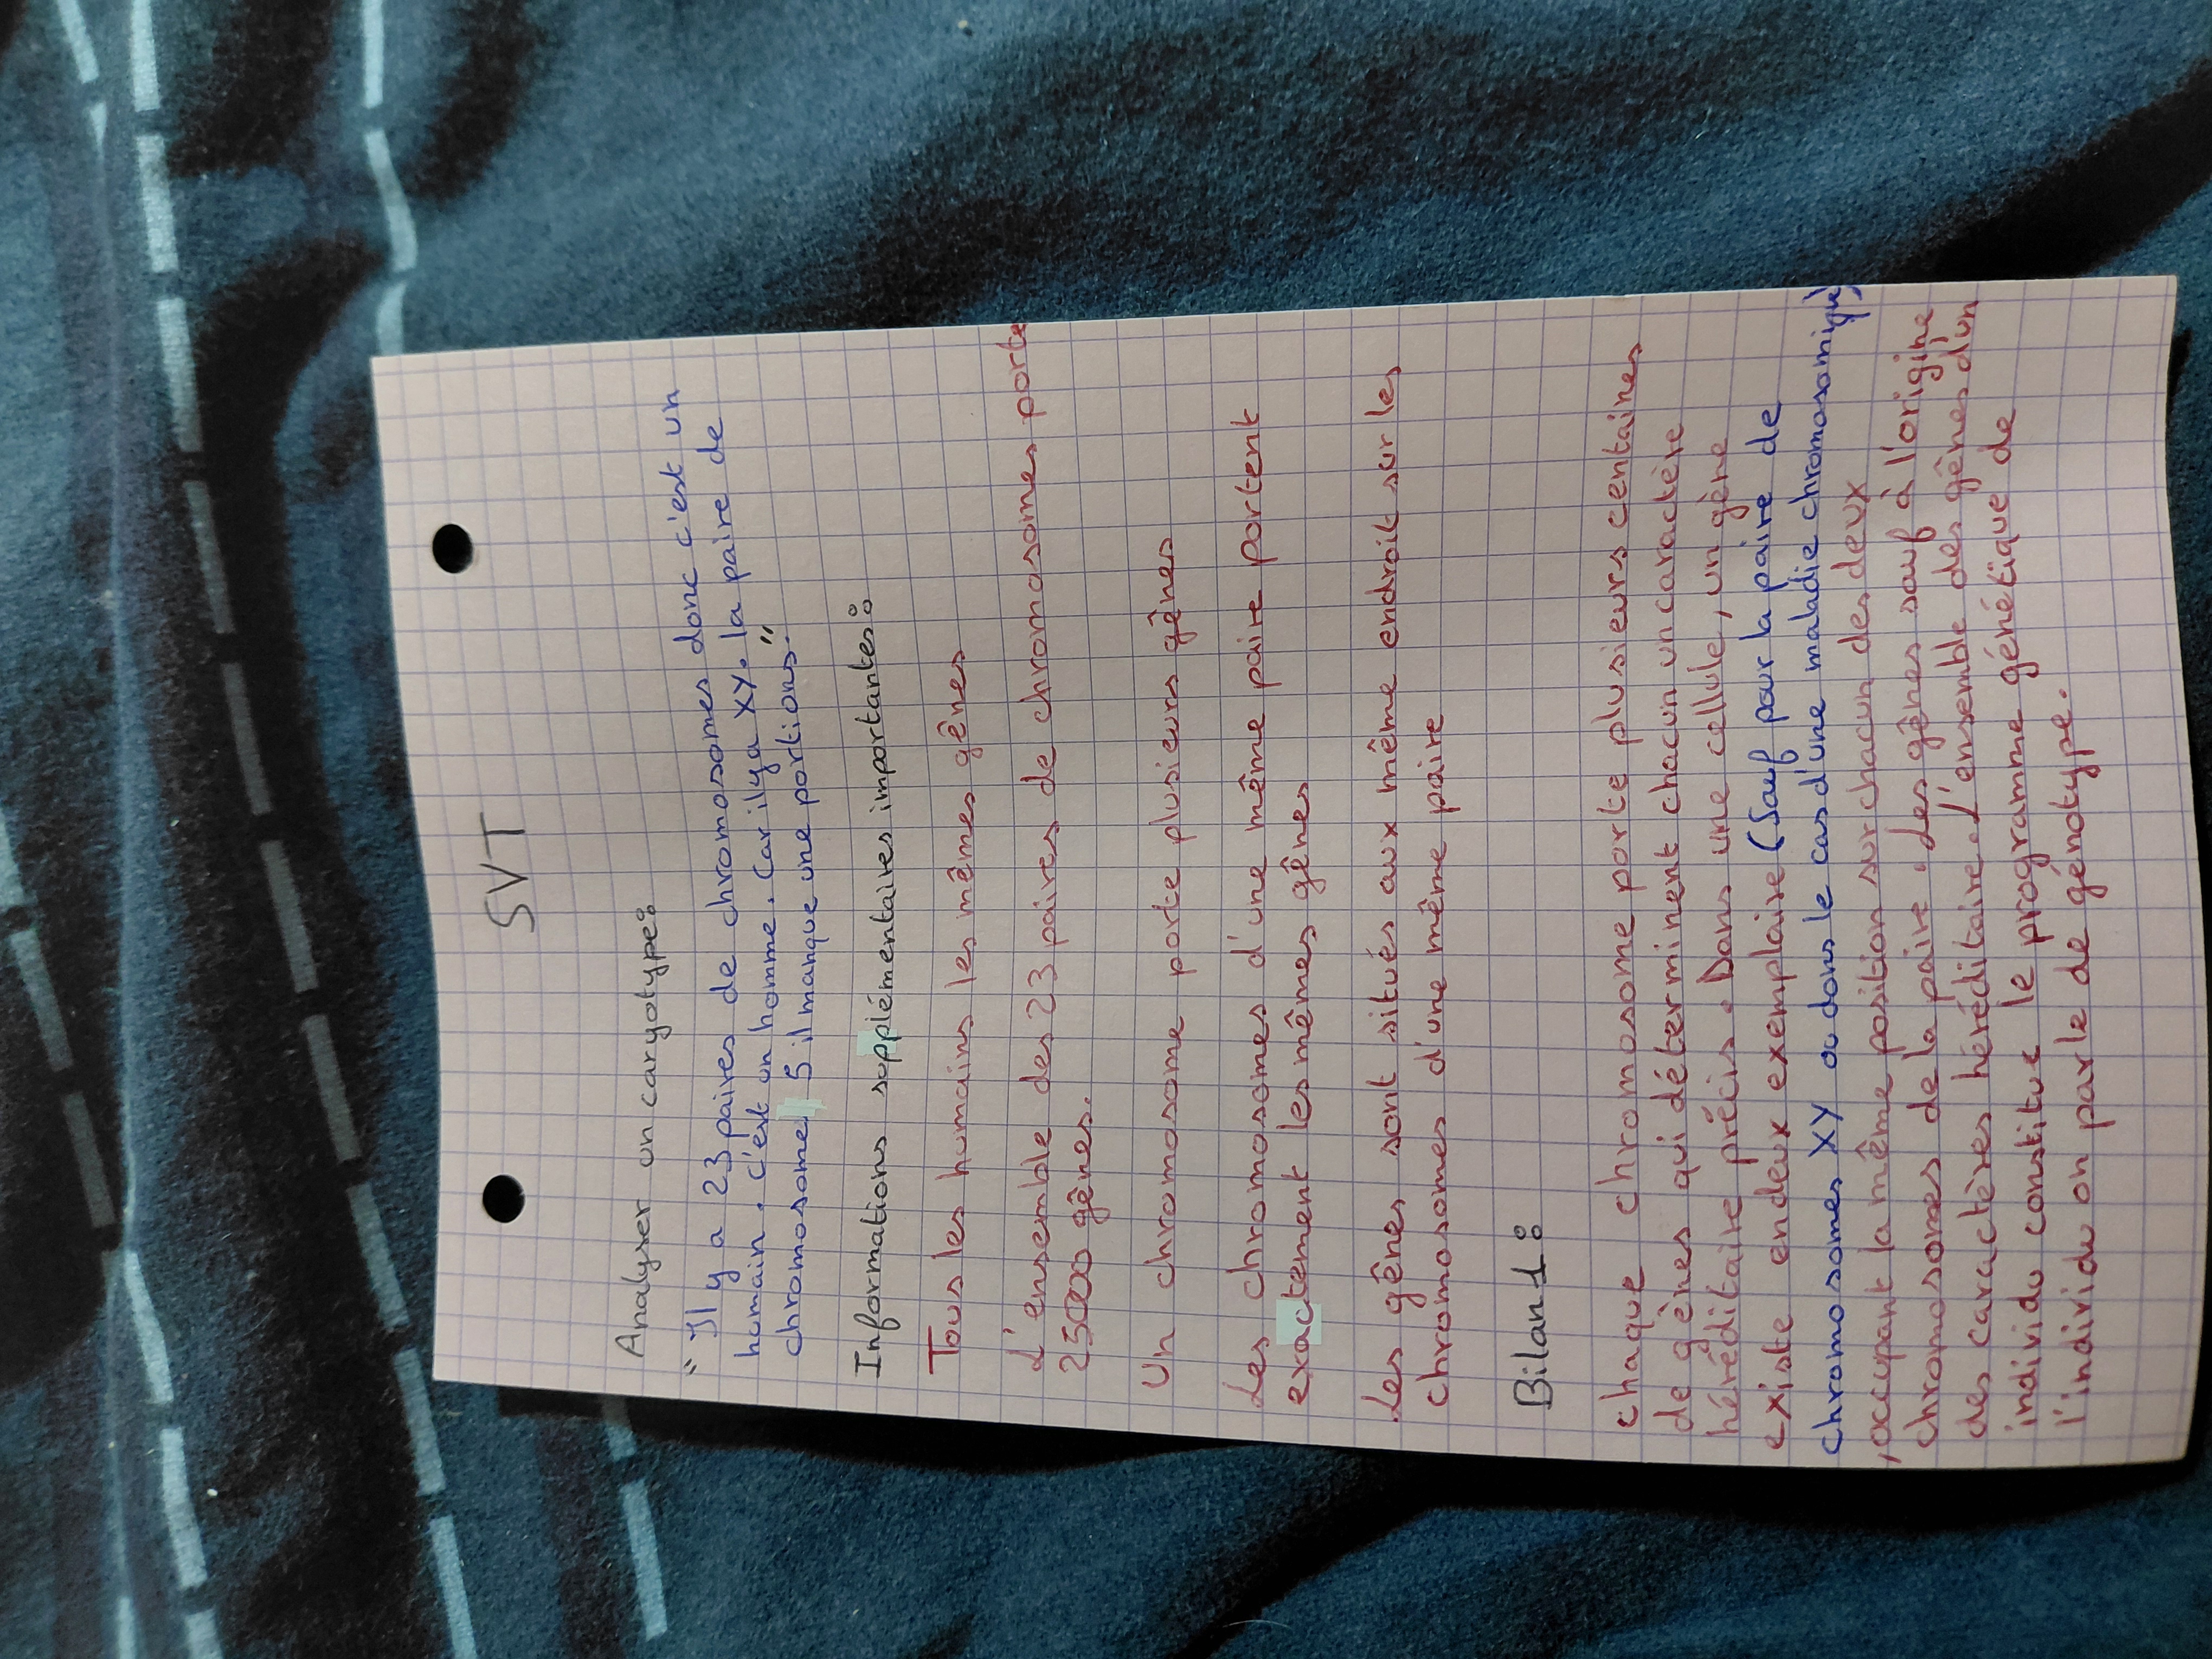 SVT
Analyser un caryotype:
"Il y a 23 paires de chromosomes donc c'est un
humain. c'est un homme. Car il y a XY. la paire de
chromosome 5 il manque une portions."
Informations supplémentaires importantes:
Tous les humains les mêmes gênes
L'ensemble des 23 paires de chromosomes porte
25000 gênes.
Un chromosome porte plusieurs gênes
Les chromosomes d'une même paire portent
exactement les mêmes gênes
Les gênes sont situés aux même endroit sur les
chromosomes d'une même paire
Bilan 1:
chaque chromosome porte plusieurs centaines
de gênes qui déterminent chacun un caractère
héréditaire précis. Dans une cellule, un gène
existe en deux exemplaire (Sauf pour la paire de
chromosomes XY ou dans le cas d'une maladie chromosomique)
,occupant la même position sur chacun des deux
chromosomes de la paire. Les gênes sauf à l'origine
des caractères héréditaire. L'ensemble des gênes d'un
individu constitue le programme génétique de
l'individu on parle de génotype.